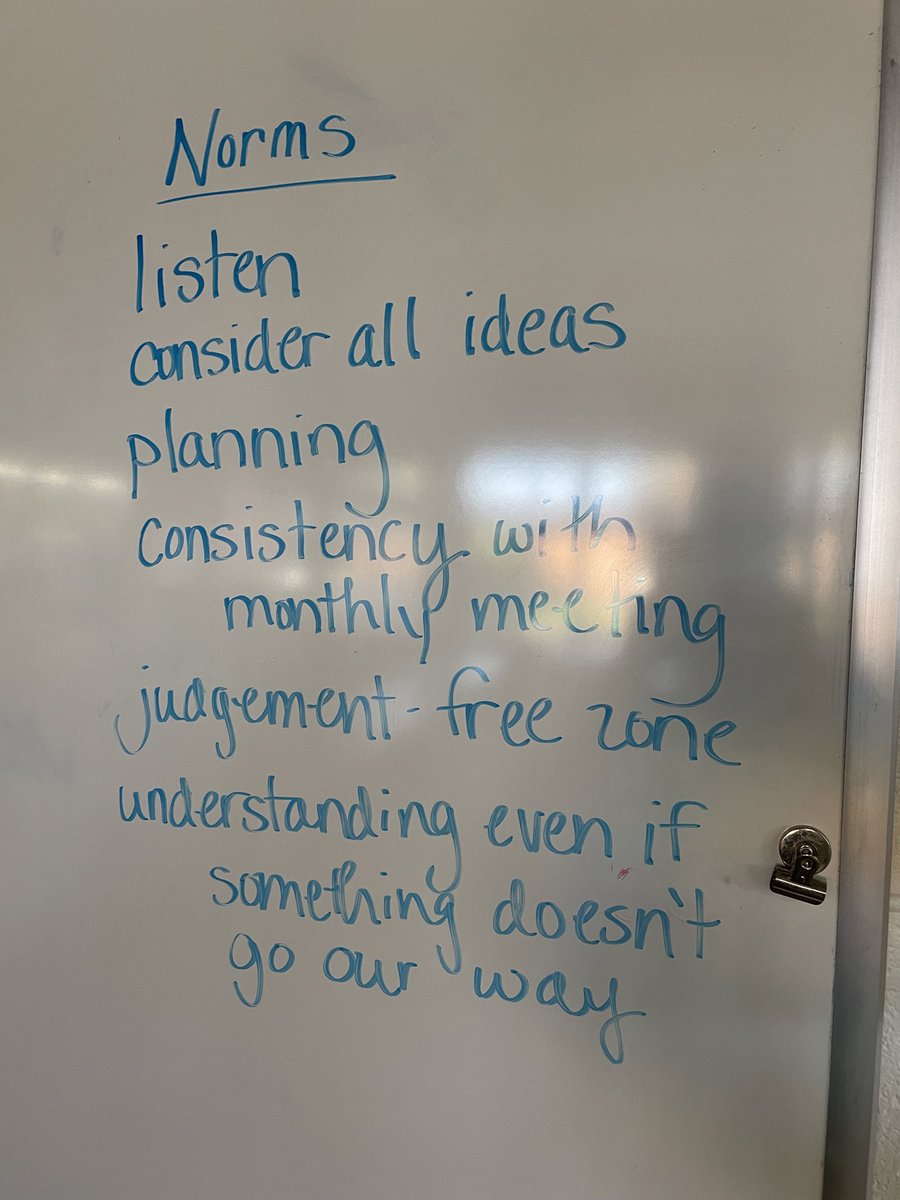 Norms
listen
consider all ideas
planning
consistency with
monthly meeting
judgement-free zone
understanding even if
something doesn't
go our way